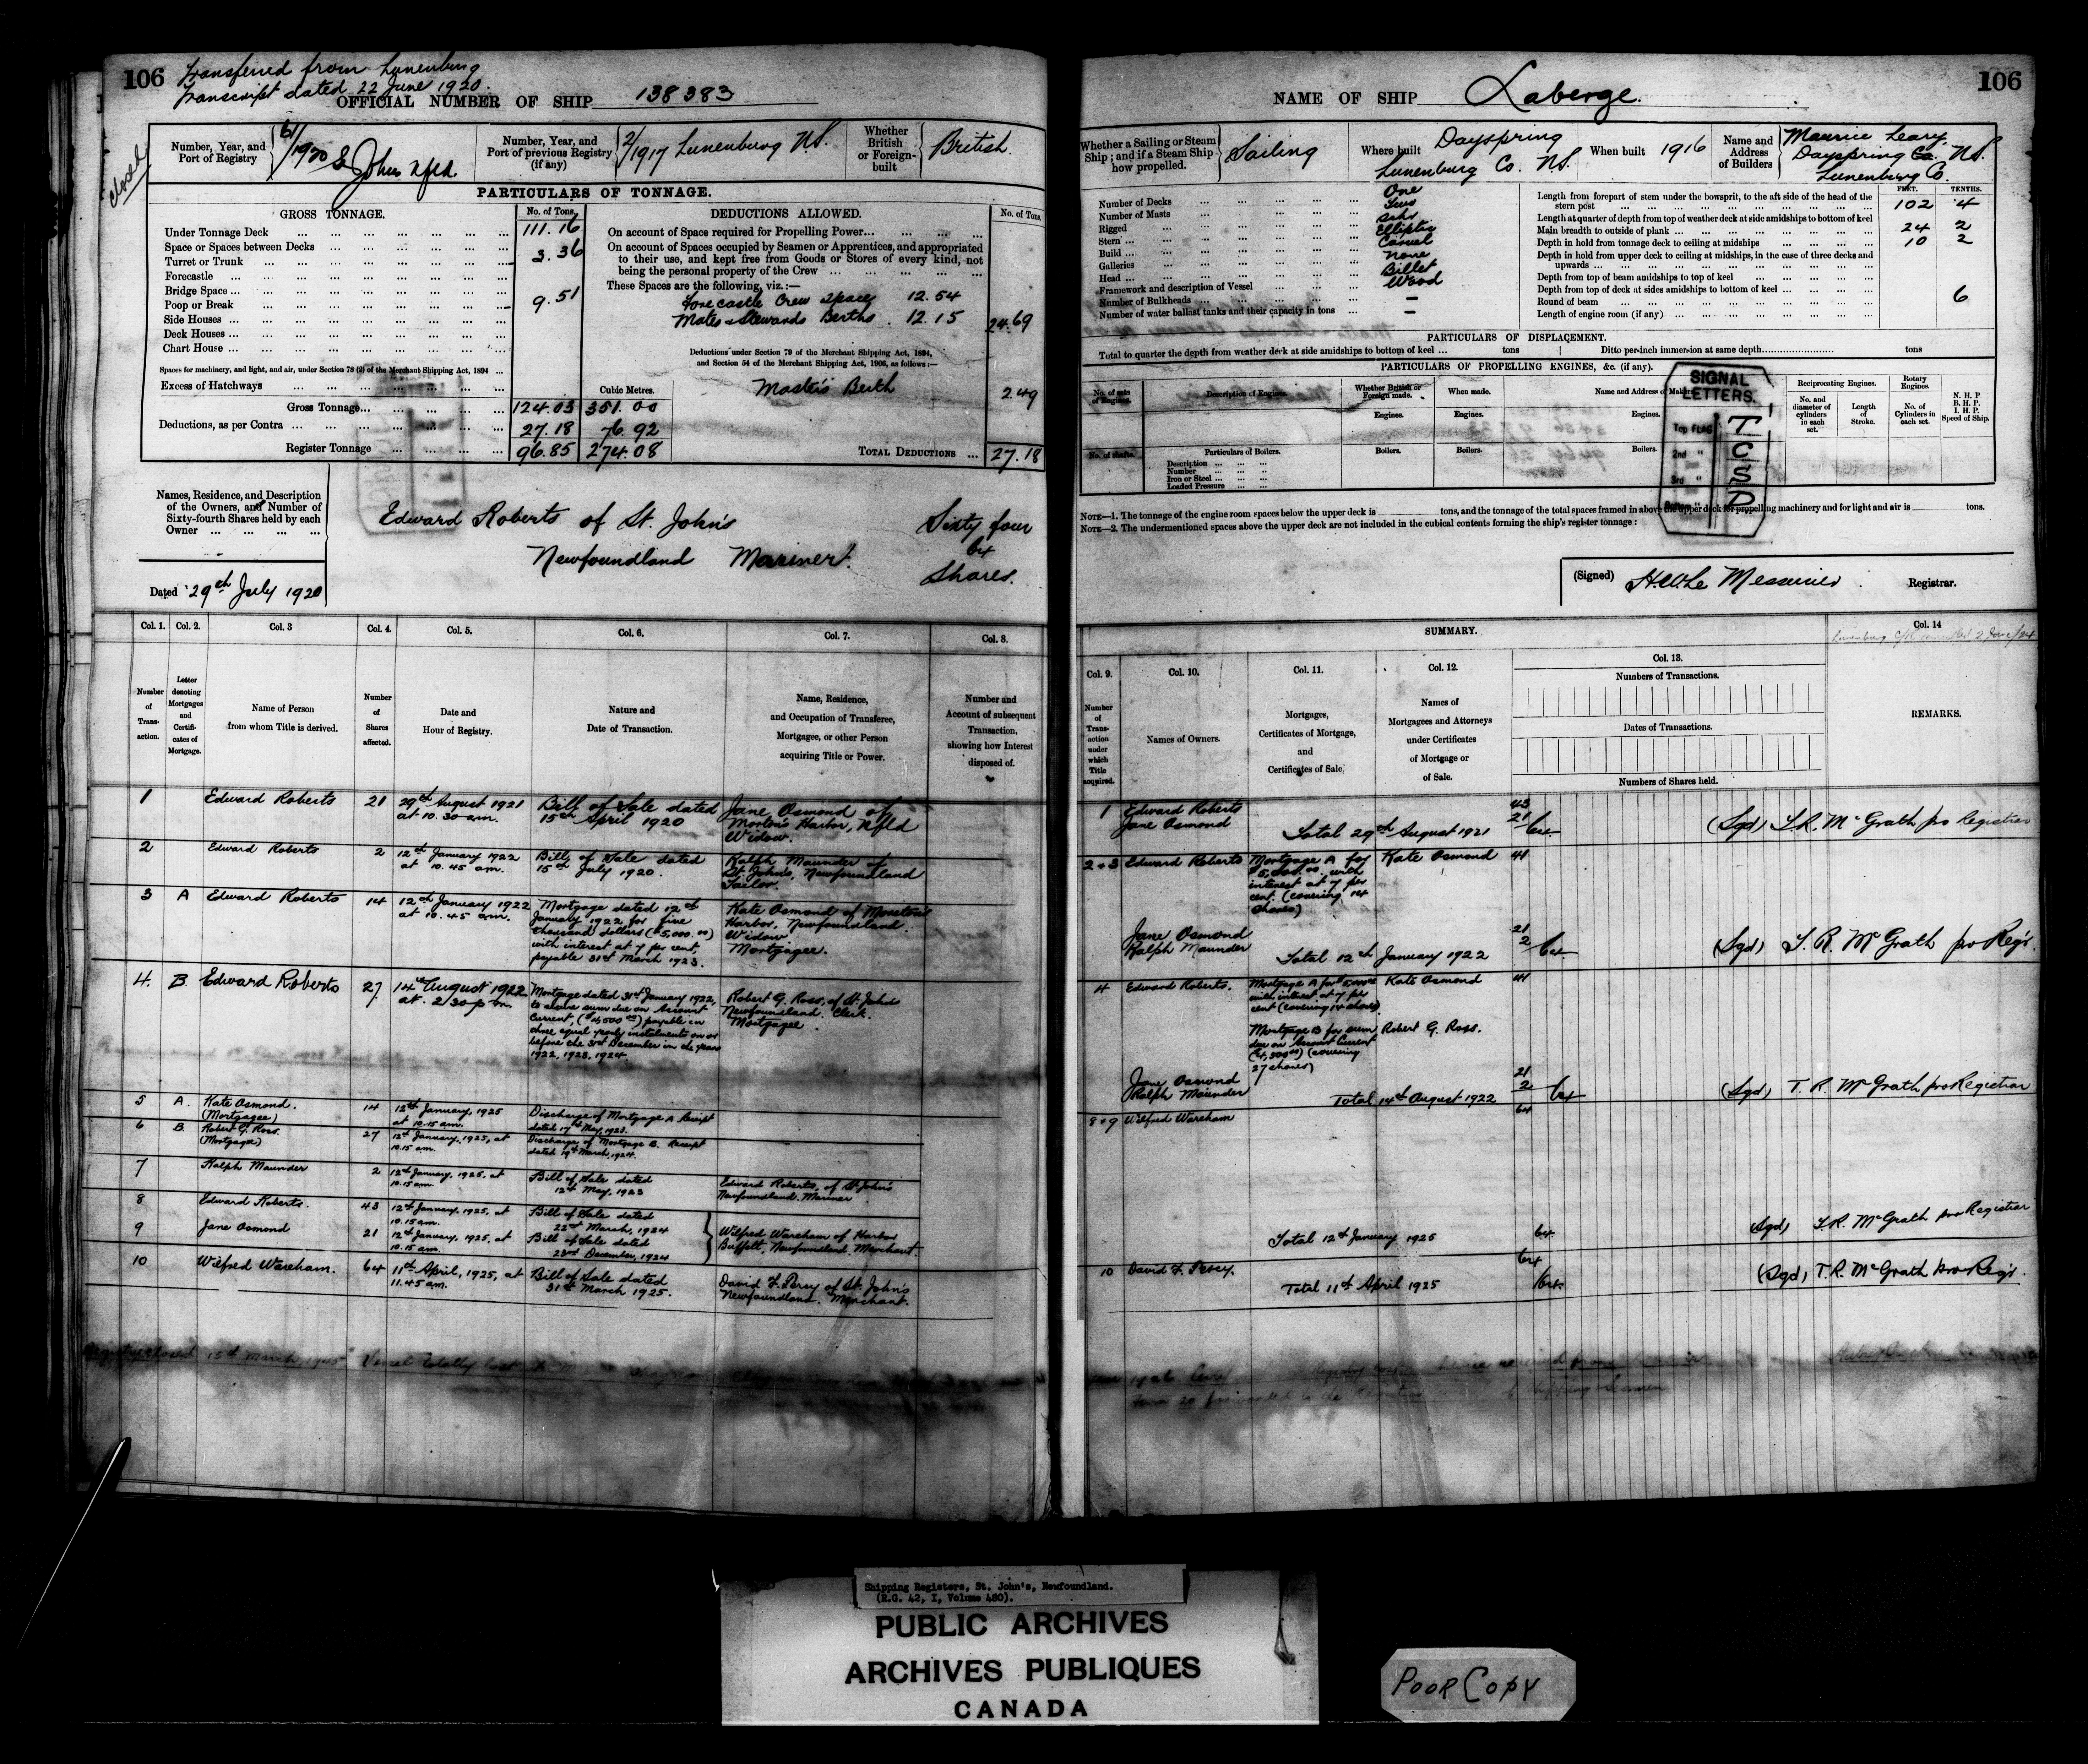 106
Transferred from Lunenburg
Transcript dated 22 June 1920.
OFFICIAL NUMBER OF SHIP 138383
Closed
Number, Year, and Port of Registry
61/1920 St Johns Nfld.
Number, Year, and Port of previous Registry (if any)
2/1917 Lunenburg N.S.
Whether British or Foreign-built
British.
PARTICULARS OF TONNAGE.
GROSS TONNAGE. No. of Tons.
Under Tonnage Deck 111.16
Space or Spaces between Decks
Turret or Trunk 3.36
Forecastle
Bridge Space
Poop or Break 9.51
Side Houses
Deck Houses
Chart House
Spaces for machinery, and light, and air, under Section 78 (2) of the Merchant Shipping Act, 1894
Excess of Hatchways
Cubic Metres.
Gross Tonnage 124.03 351.00
Deductions, as per Contra 27.18 76.92
Register Tonnage 96.85 274.08
DEDUCTIONS ALLOWED. No. of Tons.
On account of Space required for Propelling Power
On account of Spaces occupied by Seamen or Apprentices, and appropriated
to their use, and kept free from Goods or Stores of every kind, not
being the personal property of the Crew
These Spaces are the following, viz.:—
Forecastle Crew Space 12.54
Mates & Stewards Berths 12.15 24.69
Deductions under Section 79 of the Merchant Shipping Act, 1894,
and Section 54 of the Merchant Shipping Act, 1906, as follows:—
Master's Berth 2.49
TOTAL DEDUCTIONS 27.18
Names, Residence, and Description
of the Owners, and Number of
Sixty-fourth Shares held by each
Owner
Edward Roberts of St. John's
Newfoundland Mariner.
Sixty four
64
Shares.
Dated 29th July 1920
Col. 1. Col. 2. Col. 3 Col. 4. Col. 5. Col. 6. Col. 7. Col. 8.
Number of Transaction.
Letter denoting Mortgages and Certificates of Mortgage.
Name of Person from whom Title is derived.
Number of Shares affected.
Date and Hour of Registry.
Nature and Date of Transaction.
Name, Residence, and Occupation of Transferee, Mortgagee, or other Person acquiring Title or Power.
Number and Account of subsequent Transaction, showing how Interest disposed of.
1 Edward Roberts 21 29th August 1921 at 10.30 am. Bill of Sale dated 15th April 1920 Jane Osmond of Morton's Harbor, Nfld Widow.
2 Edward Roberts 2 12th January 1922 at 10.45 am. Bill of Sale dated 15th July 1920. Ralph Maunder of St. John's, Newfoundland Tailor.
3 A Edward Roberts 14 12th January 1922 at 10.45 am. Mortgage dated 12th January 1922 for five thousand dollars ($5,000.00) with interest at 7 per cent. payable 31st March 1923. Kate Osmond of Moreton's Harbor, Newfoundland. Widow Mortgagee.
4. B. Edward Roberts 27 14th August 1922 at 2/30 p.m. Mortgage dated 31st January 1922, to secure sum due on Account Current, ($4,500.00) payable in three equal yearly instalments on or before the 31st December in the years 1922, 1923, 1924. Robert G. Ross, of St. John's Newfoundland. Clerk. Mortgagee.
5 A. Kate Osmond. (Mortgagee) 14 12th January, 1925 at 10.15 am. Discharge of Mortgage A Receipt dated 17th May, 1923.
6 B. Robert G. Ross. (Mortgagee) 27 12th January, 1925, at 10.15 am. Discharge of Mortgage B. Receipt dated 19th March, 1924.
7 Ralph Maunder 2 12th January, 1925, at 10.15 am. Bill of Sale dated 12th May, 1923 Edward Roberts, of St. John's Newfoundland. Mariner
8 Edward Roberts. 43 12th January, 1925, at 10.15 am. Bill of Sale dated 22nd March, 1924
9 Jane Osmond 21 12th January, 1925, at 10.15 am. Bill of Sale dated 23rd December, 1924 Wilfred Wareham of Harbor Buffett, Newfoundland, Merchant.
10 Wilfred Wareham. 64 11th April, 1925, at 11.45 am. Bill of Sale dated 31st March 1925. David F. Percy of St. John's Newfoundland. Merchant.
Registry closed 15th March 1945 Vessel totally lost
106
NAME OF SHIP Laberge.
Whether a Sailing or Steam Ship; and if a Steam Ship how propelled.
Sailing
Where built
Dayspring
Lunenburg Co. N.S.
When built 1916
Name and Address of Builders
Maurice Leary
Dayspring Co. N.S.
Lunenburg Co.
Number of Decks One
Number of Masts Two
Rigged Schr
Stern Elliptic
Build Carvel
Galleries None
Head Billet
Framework and description of Vessel Wood
Number of Bulkheads —
Number of water ballast tanks and their capacity in tons —
FEET. TENTHS.
Length from forepart of stem under the bowsprit, to the aft side of the head of the stern post 102 4
Length at quarter of depth from top of weather deck at side amidships to bottom of keel
Main breadth to outside of plank 24 2
Depth in hold from tonnage deck to ceiling at midships 10 2
Depth in hold from upper deck to ceiling at midships, in the case of three decks and upwards
Depth from top of beam amidships to top of keel
Depth from top of deck at sides amidships to bottom of keel
Round of beam 6
Length of engine room (if any)
PARTICULARS OF DISPLACEMENT.
Total to quarter the depth from weather deck at side amidships to bottom of keel tons Ditto per inch immersion at same depth tons
PARTICULARS OF PROPELLING ENGINES, &c. (if any).
No. of sets of Engines.
Description of Engines.
Whether British or Foreign made.
When made.
Name and Address of Makers.
Reciprocating Engines.
Rotary Engines.
N. H. P.
B. H. P.
I. H. P.
Speed of Ship.
Engines. Engines. Engines.
No. and diameter of cylinders in each set.
Length of Stroke.
No. of Cylinders in each set.
No. of Shafts.
Particulars of Boilers.
Boilers. Boilers. Boilers.
Description
Number
Iron or Steel
Loaded Pressure
SIGNAL
LETTERS.
Top FLAG T
2nd " C
3rd " S
D
NOTE—1. The tonnage of the engine room spaces below the upper deck is tons, and the tonnage of the total spaces framed in above the upper deck for propelling machinery and for light and air is tons.
NOTE—2. The undermentioned spaces above the upper deck are not included in the cubical contents forming the ship's register tonnage:
(Signed) H.W. Le Messurier. Registrar.
SUMMARY.
Col. 14
Col. 9. Col. 10. Col. 11. Col. 12. Col. 13.
Number of Transaction under which Title acquired.
Names of Owners.
Mortgages, Certificates of Mortgage, and Certificates of Sale.
Names of Mortgagees and Attorneys under Certificates of Mortgage or of Sale.
Numbers of Transactions.
Dates of Transactions.
Numbers of Shares held.
REMARKS.
1 Edward Roberts 43
Jane Osmond 21
Total 29th August 1921 64 (Sgd) T.R. McGrath pro Registrar
2+3 Edward Roberts Mortgage A for $5,000.00 with interest at 7 per cent. (covering 14 shares) Kate Osmond 41
Jane Osmond 21
Ralph Maunder 2
Total 12th January 1922 64 (Sgd) T. R. McGrath pro Regr.
4 Edward Roberts. Mortgage A for $5,000.00 with interest at 7 per cent (covering 14 shares). Kate Osmond 41
Mortgage B for sum due on Account Current ($4,500.00) (covering 27 shares) Robert G. Ross.
Jane Osmond 21
Ralph Maunder 2
Total 14th August 1922 64 (Sgd) T. R. McGrath pro Registrar
8+9 Wilfred Wareham 64
Total 12th January 1925 64 (Sgd) T.R. McGrath pro Registrar
10 David F. Percy. 64
Total 11th April 1925 64 (Sgd) T.R. McGrath pro Regr.
Shipping Registers, St. John's, Newfoundland.
(R.G. 42, I, Volume 480).
PUBLIC ARCHIVES
ARCHIVES PUBLIQUES
CANADA
POOR COPY